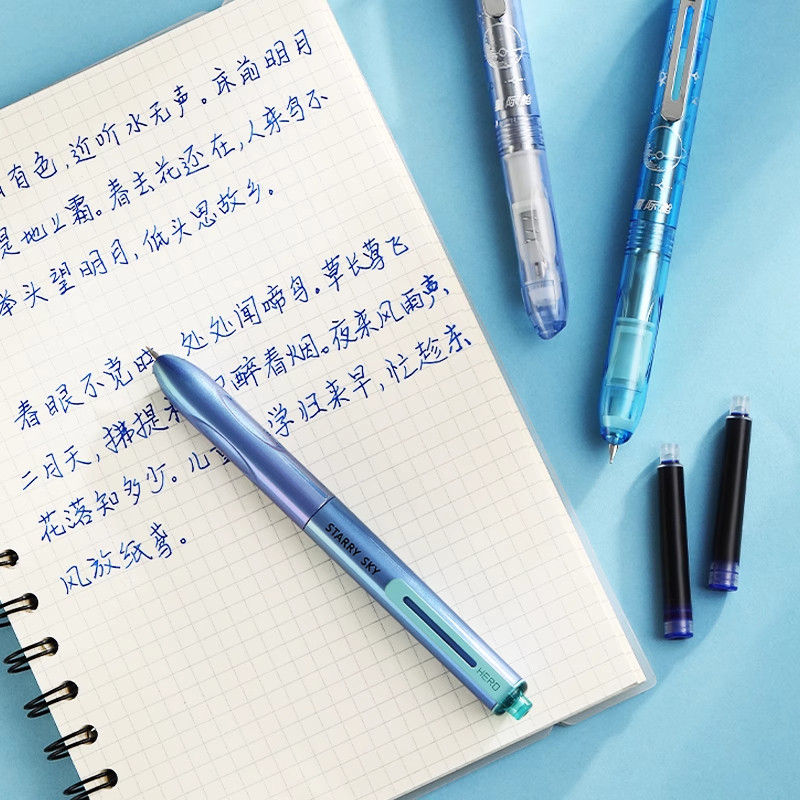 有色,近听水无声。床前明月
是地上霜。春去花还在,人来鸟不
举头望明月,低头思故乡。
春眠不觉 处处闻啼鸟。草长莺飞
二月天,拂提 醉春烟。夜来风雨声,
花落知多少。儿 学归来早,忙趁东
风放纸鸢。
STARRY SKY
HERO
际舱
际舱